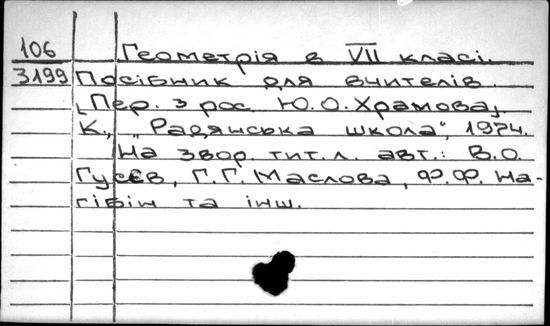 106 Геометрія в VII класі.
3199 Посібник для вчителів.
[Пер. з рос. Ю.О.Храмова]
К., "Радянська школа", 1974.
На звор. тит.л. авт.: В.О.
Гусєв, Г.Г.Маслова, Ф.Ф. На-
гібін та інш.